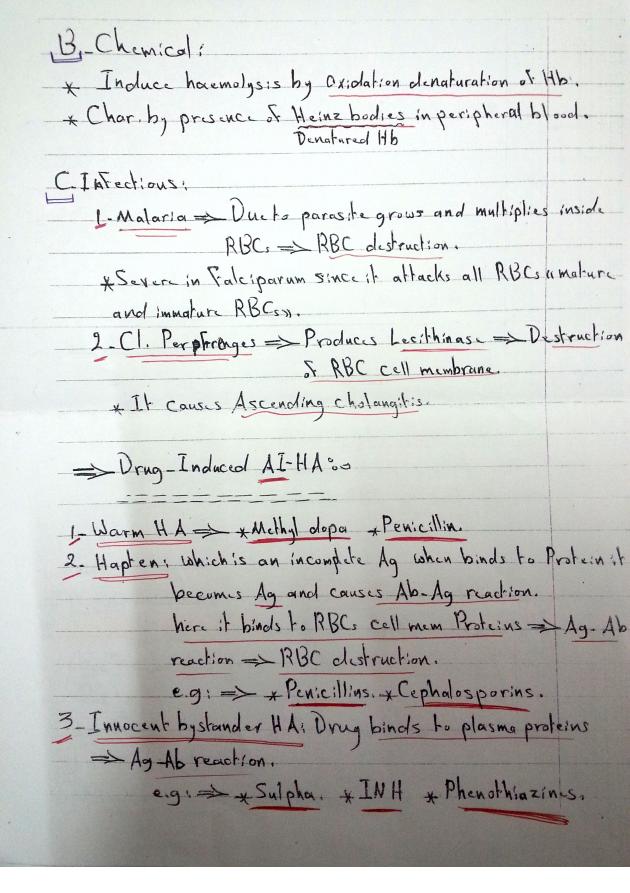 B - Chemical:
* Induce haemolysis by Oxidation denaturation of Hb.
* Char. by presence of Heinz bodies in peripheral blood.
Denatured Hb
C. Infectious:
1- Malaria ⇒ Due to parasite grows and multiplies inside
RBCs ⇒ RBC destruction.
* Severe in Falciparum since it attacks all RBCs «mature
and immature RBCs».
2- Cl. Perpfrenges ⇒ Produces Lecithinase ⇒ Destruction
of RBC cell membrane.
* It causes Ascending cholangitis.
⇒ Drug-Induced AI-HA:
1- Warm HA ⇒ * Methyl dopa * Penicillin.
2- Hapten: which is an incomplete Ag when binds to Protein it
becomes Ag and causes Ab-Ag reaction.
here it binds to RBCs cell mem Proteins ⇒ Ag-Ab
reaction ⇒ RBC destruction.
e.g: ⇒ * Penicillins. * Cephalosporins.
3- Innocent bystander HA: Drug binds to plasma proteins
⇒ Ag-Ab reaction.
e.g: ⇒ * Sulpha. * INH * Phenothiazines.